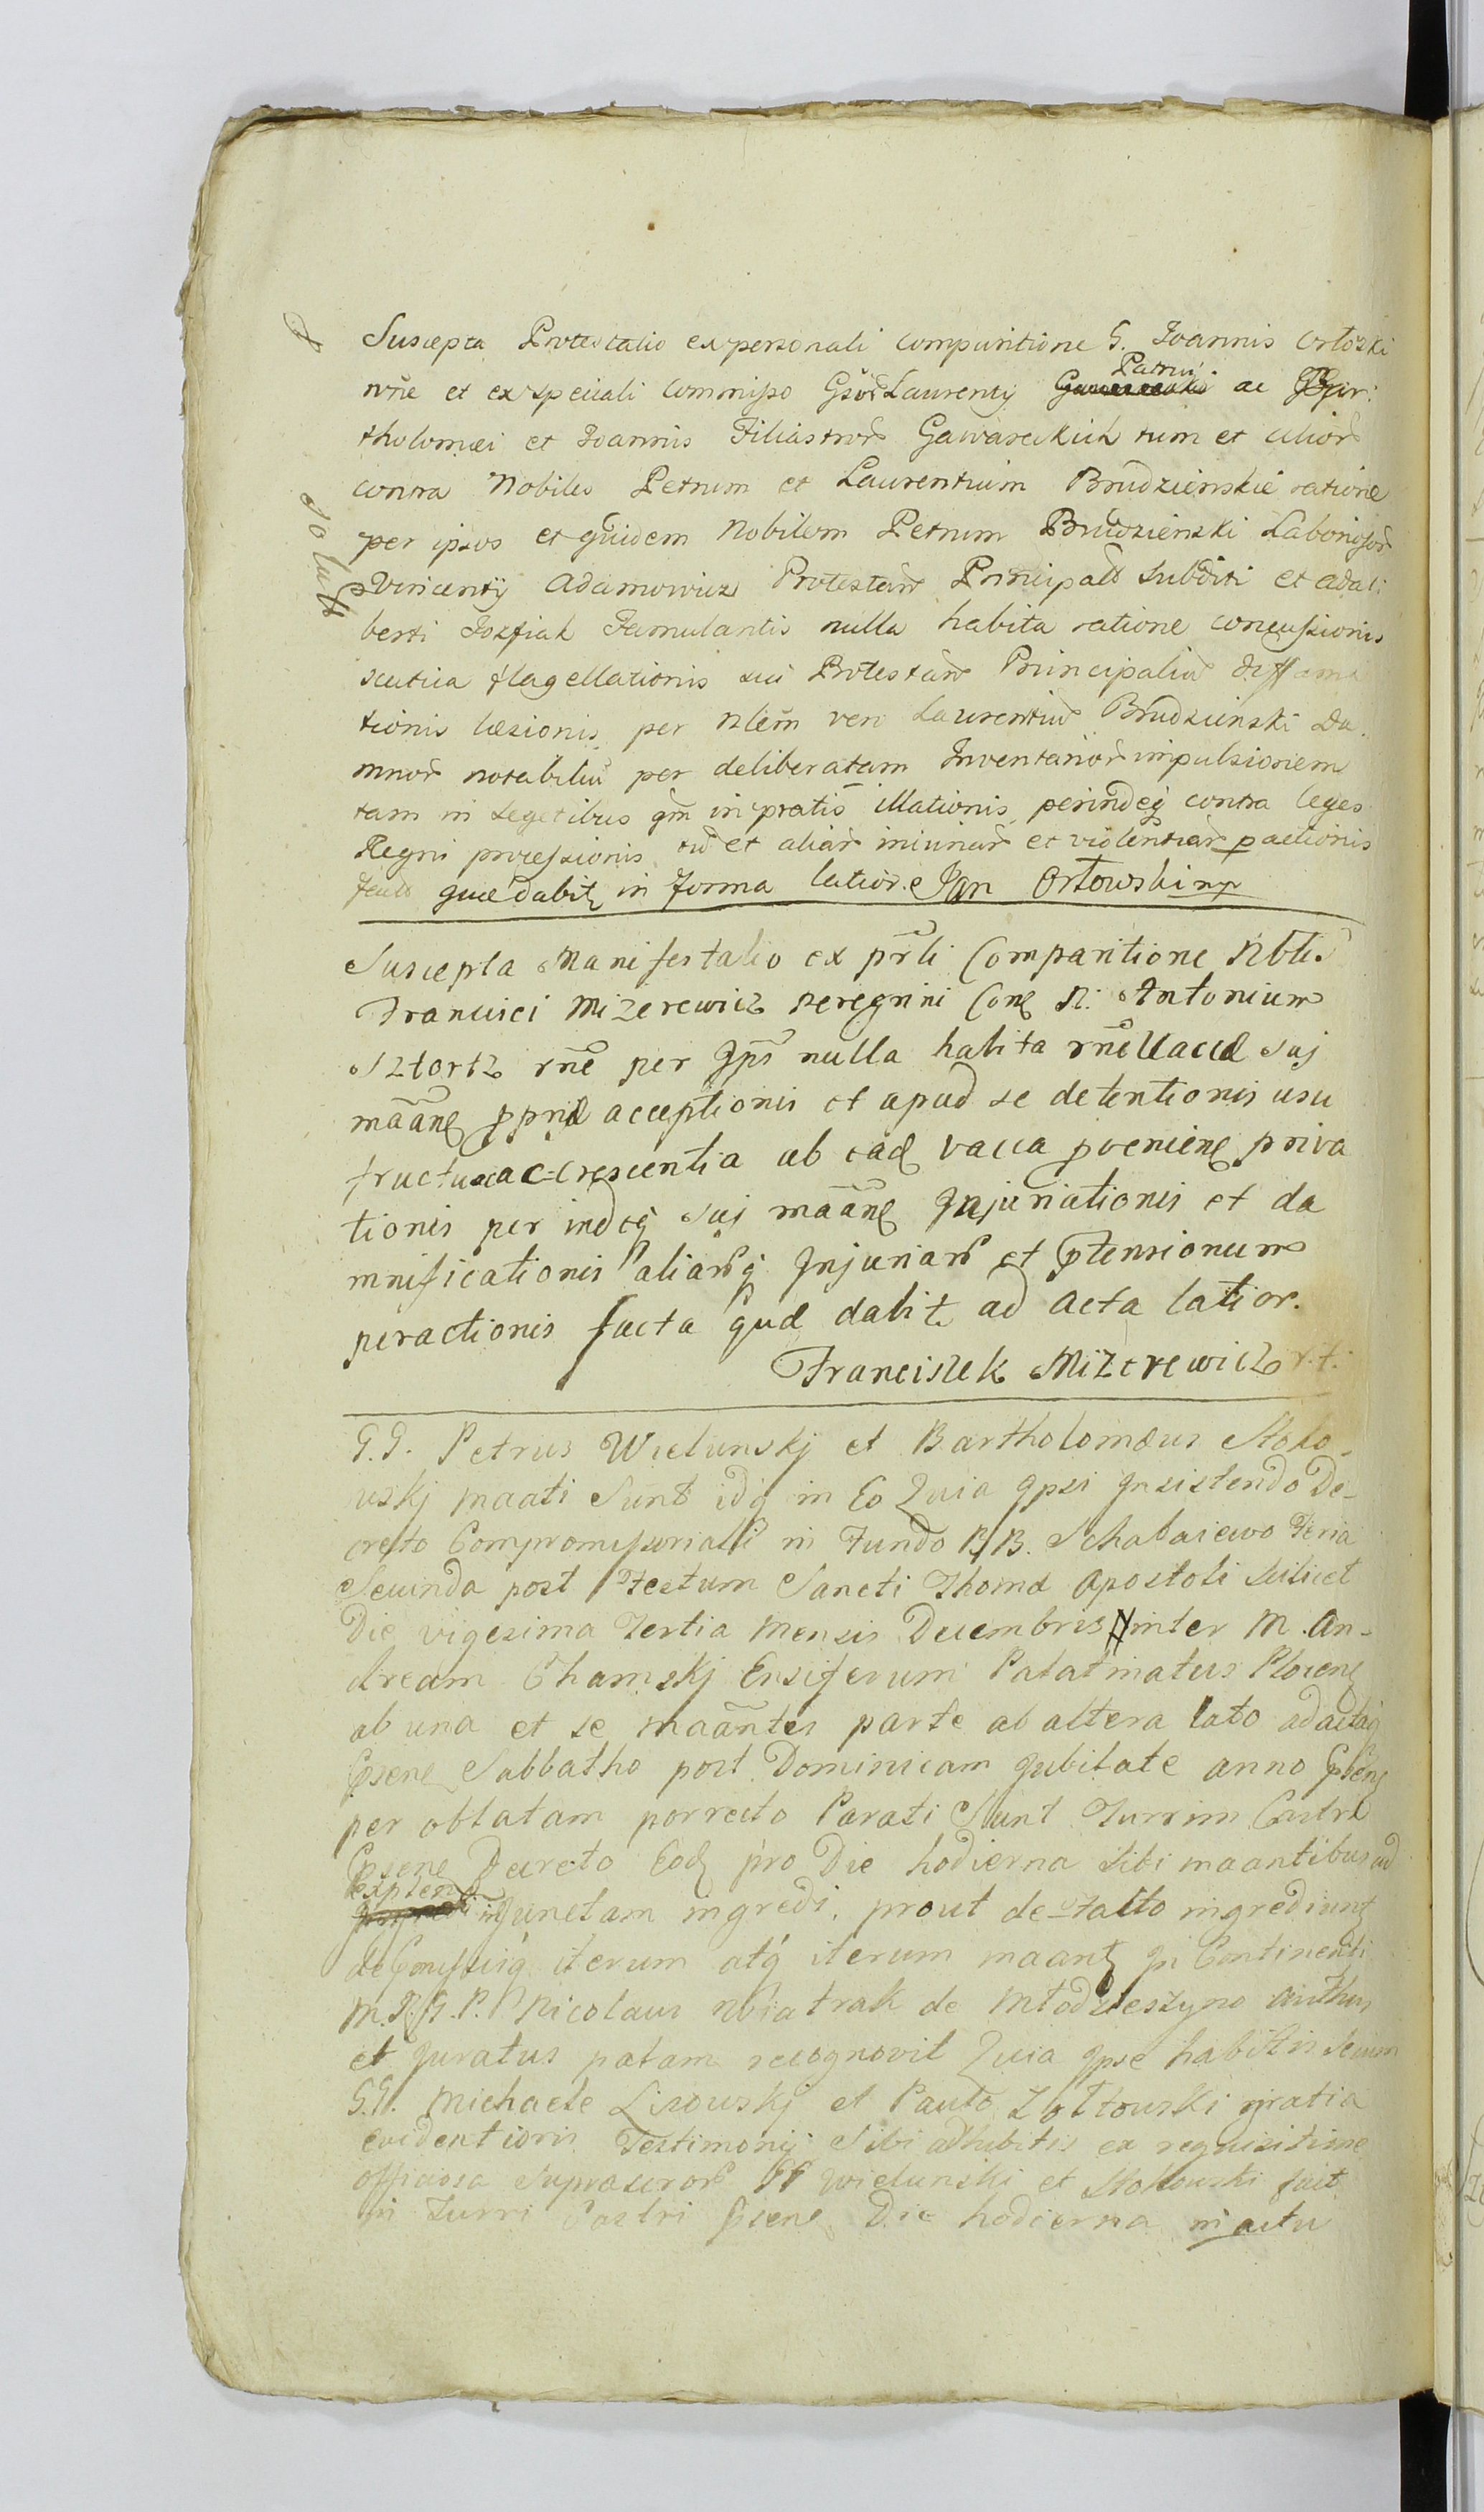 Suscepta Protestatio ex personali comparitione G. Joannis Orłoski
nrñe et ex speciali commisso Gsor Laurentij Patrui ac Bar:
tholomæi et Joannis Filiastror Gawareckich tum et alior
contra Nobiles Petrum et Laurentium Brudzienskie ratione
per ipsos et quidem Nobilem Petrum Brudzienski Laboriosor
Vincentij Adamowicz Protestan Principaliu subditi et Adal:
berti Jozfiak Famulantis nulla habita ratione concussionis
scutica flagellationis sui Protestan Principaliu diffama
tionis læsionis per Nlem vero Laurentiu Brudzienski Da
mnor notabiliu per deliberatam Inventarior impulsionem
tam in segetibus qm in pratis illationis perindeq contra leges
Regni processionis tu et aliar iniuriar et violentiar pactionis
facta quæ dabit in forma latior. Jan Orłowski mp
Salutt
Suscepta Manifestatio ex prli Comparitione Nbli
Francisci Mizerewicz peregrini Con N. Antonium
Sztortz rñe per Ips nulla habita rñe Vaccæ suj
mãang ppriæ acceptionis et apud se detentionis usu
fructu ac crescentia ab ead vacca proveniene priva
tionis per indeq suj mãane Injuriationis et da
mnificationis aliarq Injuriar et ptensionum
peractionis facta quæ dabit ad acta latior.
Franciszek Mizerewicz
G.G. Petrus Wielunskj et Bartholomæus Stoko-
wskj maati Sunt idq in Eo Quia Ipsi Insistendo De-
creto Compromissoriali in Fundo BB. Schabaiewo Feria
Secunda post Festum Sancti Thomæ Apostoli scilicet
Die vigesima Tertia Mensis Decembris inter M. An-
dream Chamskj Ensiferum Palatinatus Plocene
ab una et se maãntes parte ab altera lato ad actaq
Psene Sabbatho post Dominicam Jubilate anno Psene
per oblatam porrecto Parati Sunt Turrim Castri
Psene Decreto Eod pro Die hodierna sibi maantibus ad
explen injunctam ingredi, prout de facto ingrediunt
iterum atq iterum maant In Continenti
M. Nicolaus Wiatrak de Młodzieszyno authus
et Juratus palam recognovit Quia Ipse habitis secum
G.G. Michaele Lisowskj et Paulo Zołtowski gratia
evidentioris Testimonij sibi adhibitis ex requisitione
officiosa suprascror GG Wielunski et Stokowski fuit
in Turri Castri Psene Die hodierna in actu